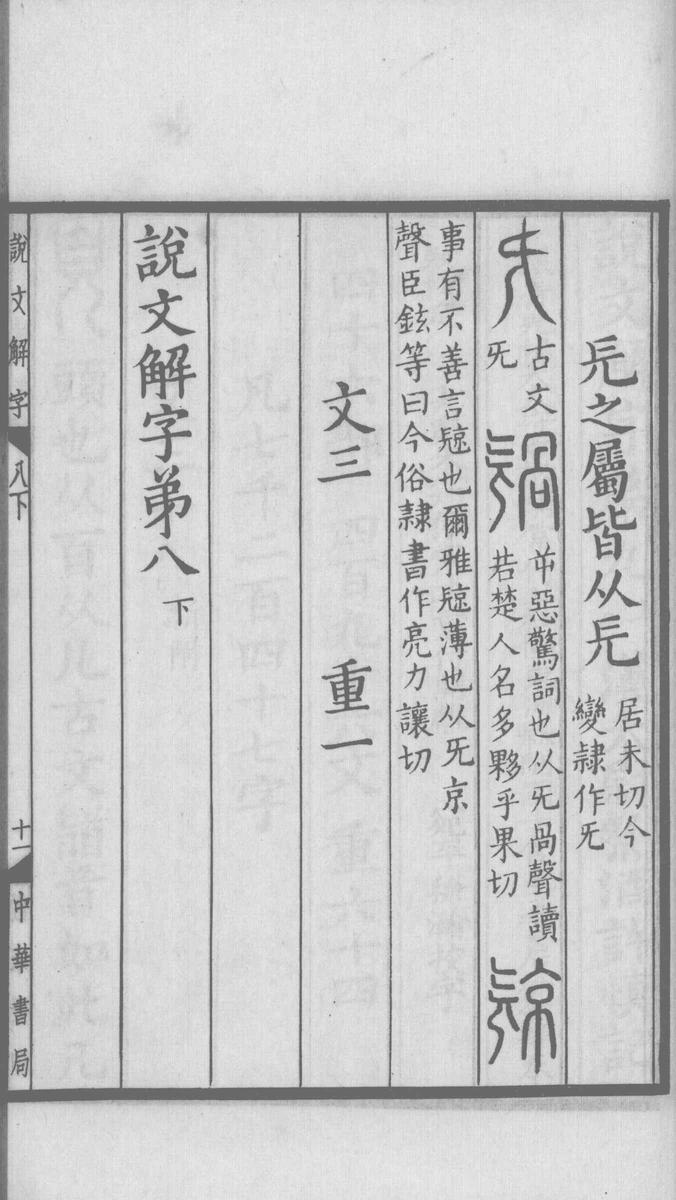 旡之屬皆从旡
居未切今
變隷作旡
旡
古文
旡
𣄸
屰惡驚詞也从旡咼聲讀
若楚人名多夥乎果切
𣄴
事有不善言𣄴也爾雅𣄴薄也从旡京
聲臣鉉等曰今俗隷書作亮力讓切
文三 重一
說文解字弟八 下
說文解字 八下 十一 中華書局